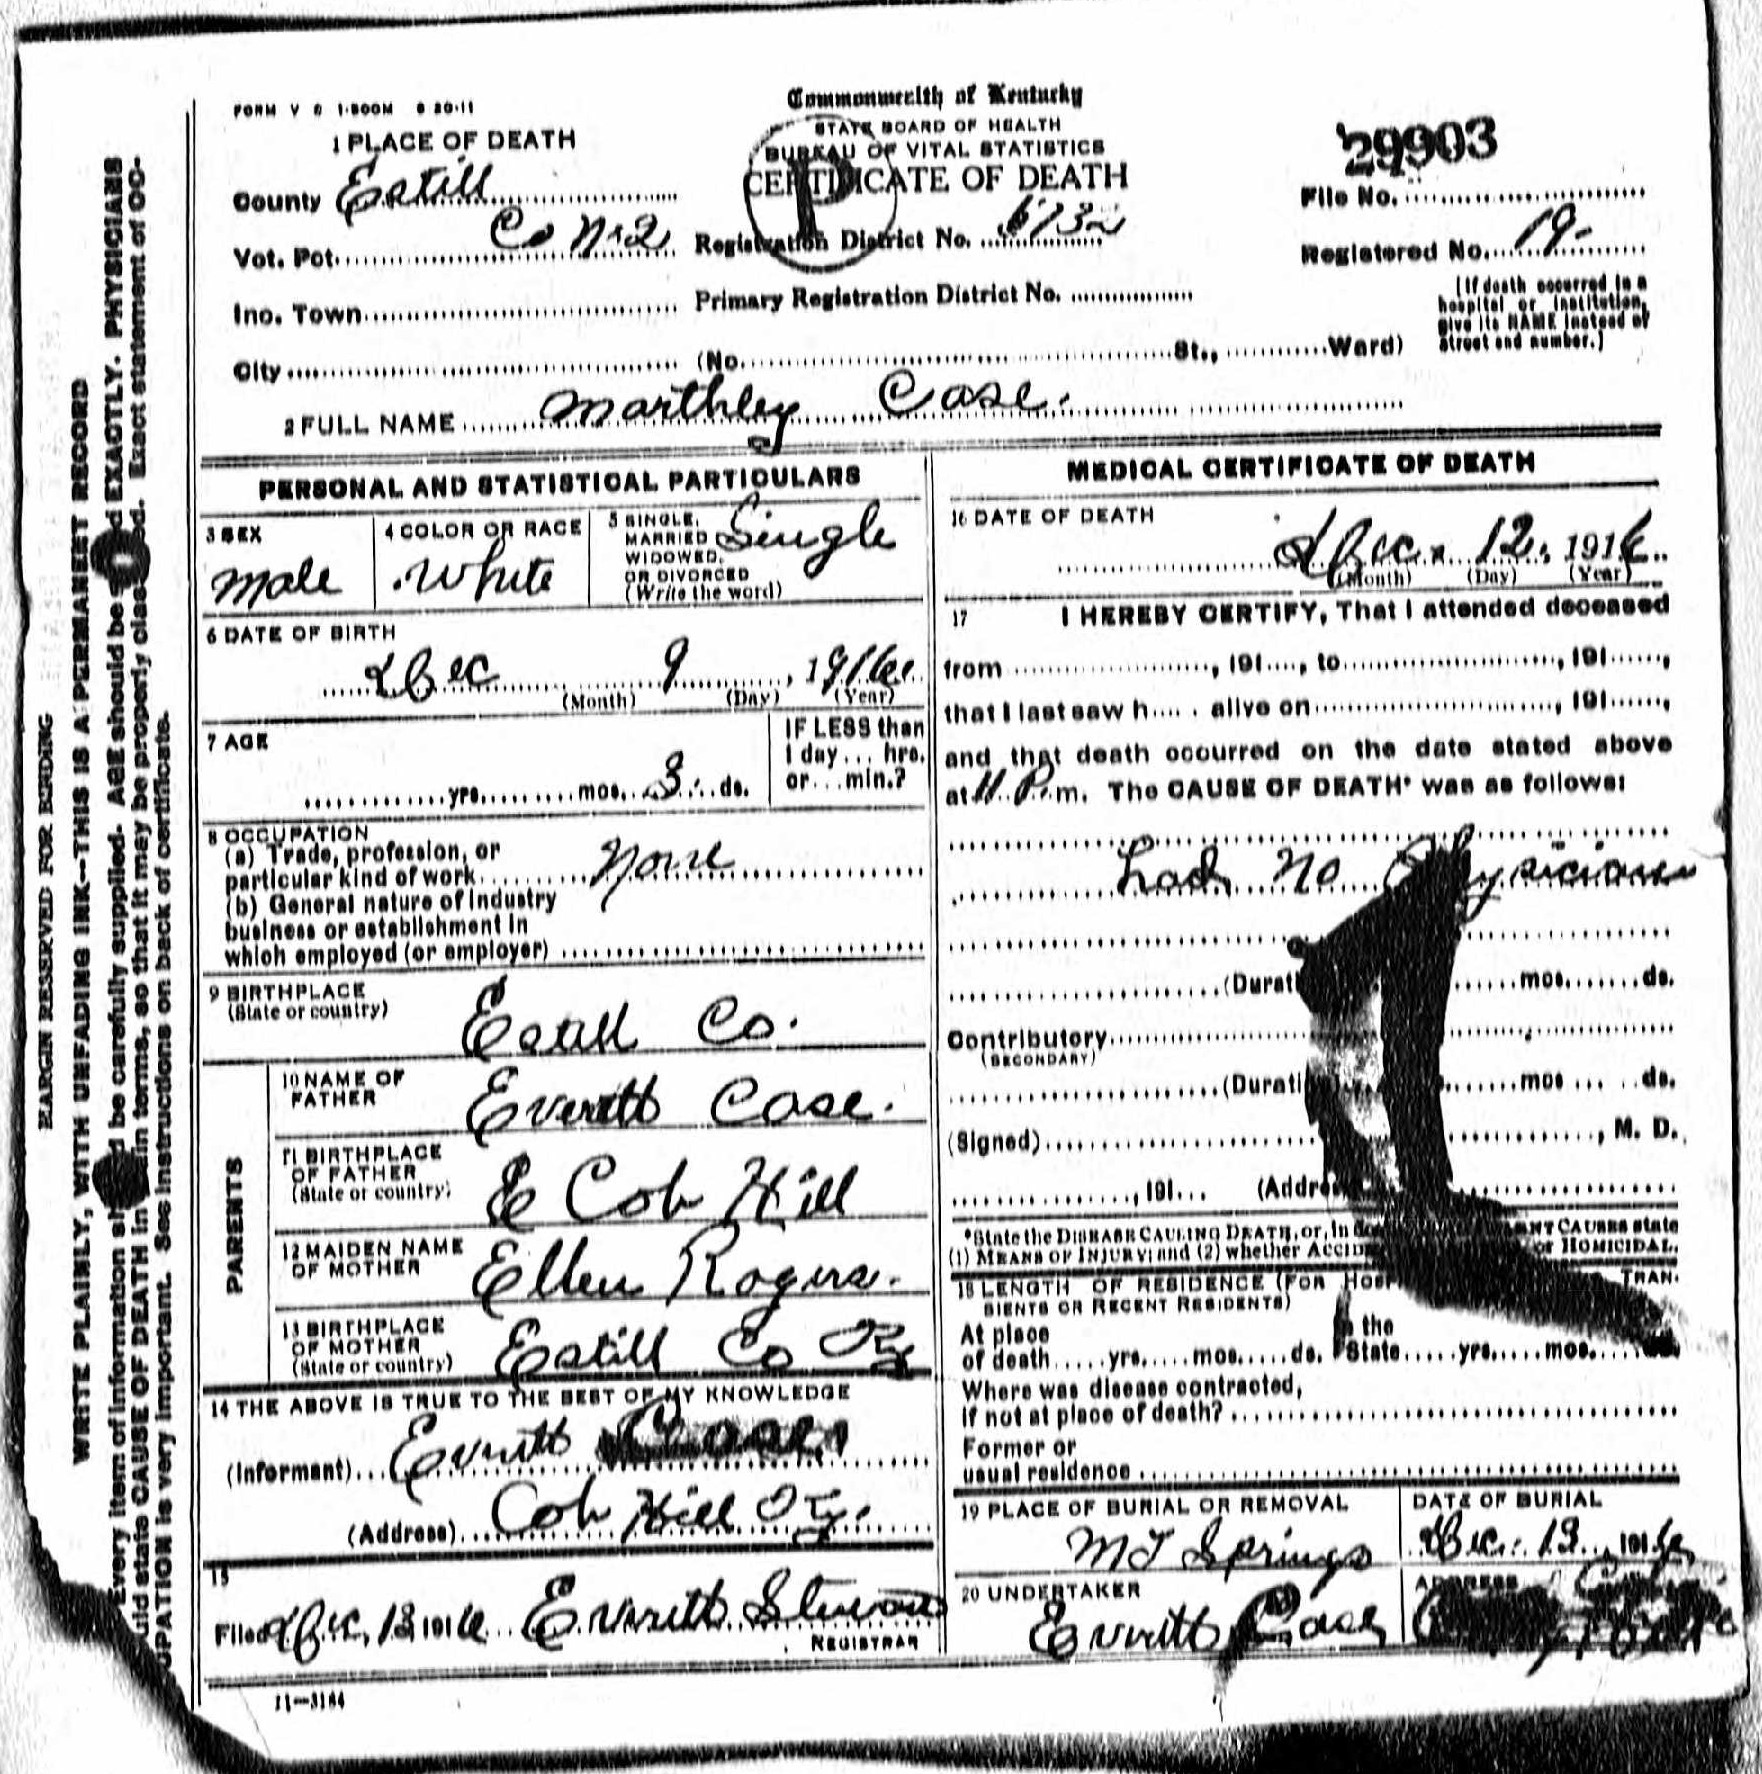 FORM V S 1-500M 8 20-11
Commonwealth of Kentucky
STATE BOARD OF HEALTH
BUREAU OF VITAL STATISTICS
CERTIFICATE OF DEATH
29903
File No.
1 PLACE OF DEATH
County Estill
Vot. Pct. Co No 2
Registration District No. 6732
Registered No. 19-
Inc. Town
Primary Registration District No.
City (No. St., Ward)
[If death occurred in a
hospital or institution,
give its NAME instead of
street and number.]
2 FULL NAME Marthley Case.
PERSONAL AND STATISTICAL PARTICULARS
3 SEX
Male
4 COLOR OR RACE
White
5 SINGLE,
MARRIED
WIDOWED,
OR DIVORCED
(Write the word)
Single
6 DATE OF BIRTH
Dec 9, 1916
(Month) (Day) (Year)
7 AGE
yrs. mos. 3 ds.
IF LESS than
1 day... hrs.
or... min.?
8 OCCUPATION
(a) Trade, profession, or
particular kind of work None
(b) General nature of industry
business or establishment in
which employed (or employer)
9 BIRTHPLACE
(State or country)
Estill Co.
PARENTS
10 NAME OF
FATHER
Everett Case.
11 BIRTHPLACE
OF FATHER
(State or country)
Cob Hill
12 MAIDEN NAME
OF MOTHER
Ellen Rogers.
13 BIRTHPLACE
OF MOTHER
(State or country)
Estill Co Ky
14 THE ABOVE IS TRUE TO THE BEST OF MY KNOWLEDGE
(Informant) Everett Case
(Address) Cob Hill Ky.
15
Filed Dec. 13 1916 Everett
REGISTRAR
11-3184
MEDICAL CERTIFICATE OF DEATH
16 DATE OF DEATH
Dec. 12, 1916
(Month) (Day) (Year)
17 I HEREBY CERTIFY, That I attended deceased
from , 191 , to , 191 ,
that I last saw h alive on , 191 ,
and that death occurred on the date stated above
at 11 P. m. The CAUSE OF DEATH* was as follows:
had no Physician
mos. ds.
Contributory
(SECONDARY)
mos ds.
(Signed) , M. D.
, 191
*State the DISEASE CAUSING DEATH, or, in CAUSES state
(1) MEANS OF INJURY; and (2) whether or HOMICIDAL.
18 LENGTH OF RESIDENCE (FOR TRAN-
SIENTS OR RECENT RESIDENTS)
At place In the
of death yrs. mos. ds. State yrs. mos.
Where was disease contracted,
if not at place of death?
Former or
usual residence
19 PLACE OF BURIAL OR REMOVAL
Mt Springs
DATE OF BURIAL
Dec. 13, 1916
20 UNDERTAKER
Everett Case
ADDRESS
MARGIN RESERVED FOR BINDING
WRITE PLAINLY, WITH UNFADING INK—THIS IS A PERMANENT RECORD
Every item of information be carefully supplied. AGE should be EXACTLY. PHYSICIANS
state CAUSE OF DEATH in terms, so that it may be properly Exact statement of OC-
CUPATION is very important. See instructions on back of certificate.